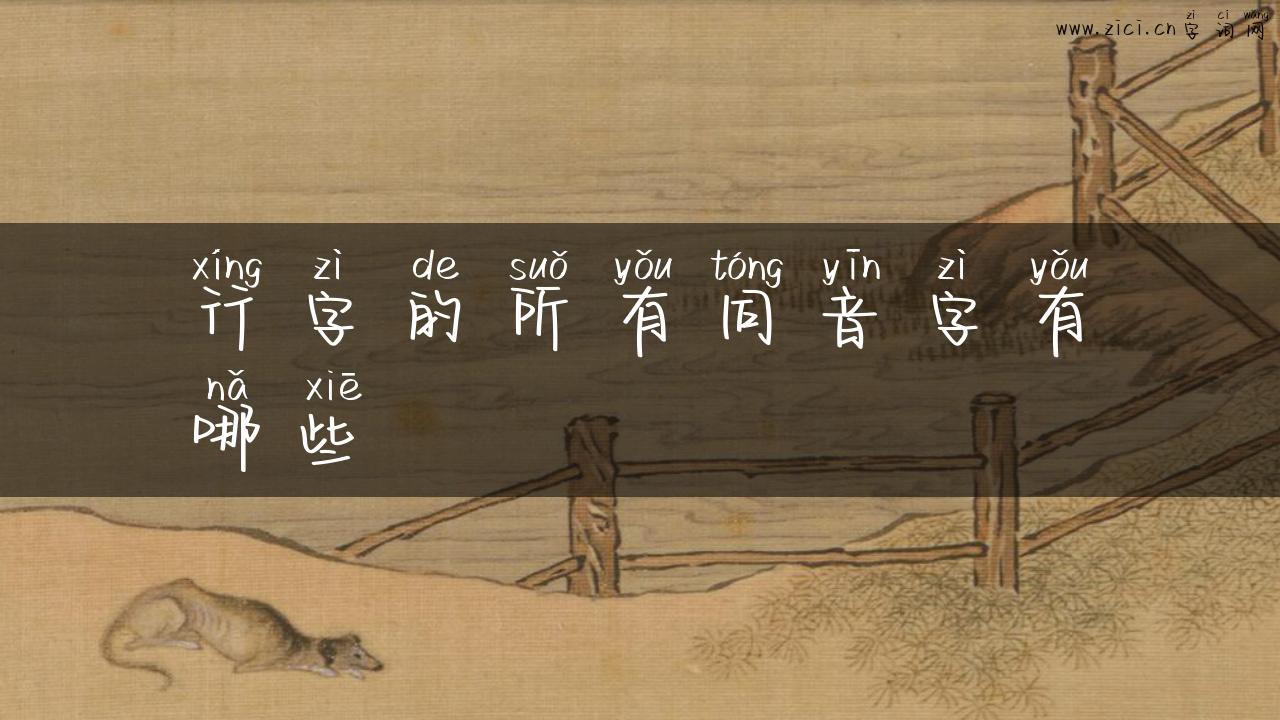 zì cí wǎng
www.zici.cn 字词网
xíng zì de suǒ yǒu tóng yīn zì yǒu
行字的所有同音字有
nǎ xiē
哪些